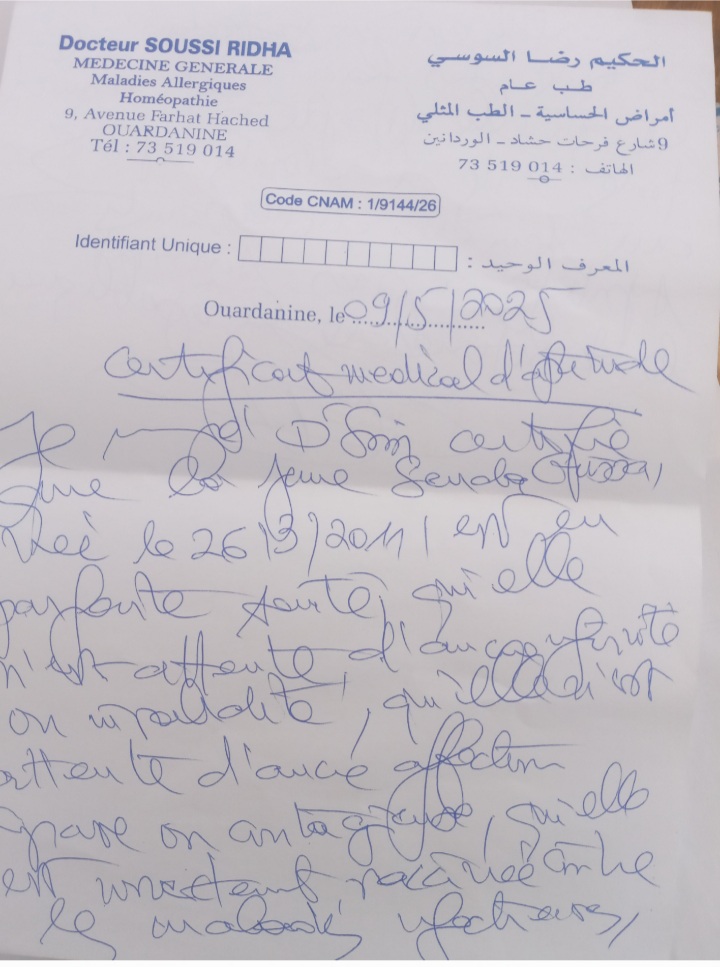 Docteur SOUSSI RIDHA
MEDECINE GENERALE
Maladies Allergiques
Homéopathie
9, Avenue Farhat Hached
OUARDANINE
Tél : 73 519 014
الحكيم رضا السوسي
طب عام
أمراض الحساسية - الطب المثلي
9 شارع فرحات حشاد - الوردانين
الهاتف : 014 519 73
Code CNAM : 1/9144/26
Identifiant Unique : المعرف الوحيد :
Ouardanine, le 09/5/2025
certificat medical d'aptitude
Je certifie
que la jeune
née le 26/3/2011 est en
parfaite santé, qu'elle
n'est atteinte, d'aucune infirmité
ou invalidité, qu'elle n'est
atteinte d'aucune affection
grave ou contagieuse, qu'elle
est vaccinée contre
les maladies infectieuses,